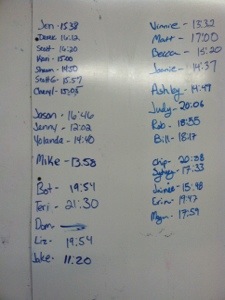 Jen - 15:38
Dave - 16:12
Scott - 16:20
Ken - 15:00
Shawn - 14:50
Scott G - 15:57
Cheryl - 15:05
Jason - 16:46
Jenny - 12:02
Yolanda - 14:40
Mike - 13:58
Bot - 19:54
Teri - 21:30
Dom -
Liz - 19:54
Jake - 11:20
Vinnie - 13:32
Matt - 17:00
Deacon - 15:20
Jamie - 14:37
Ashby - 14:47
Judy - 20:06
Rob - 18:55
Bill - 18:17
Chip - 20:08
Sydney - 17:33
Jaimee - 15:48
Erin - 19:47
Megn - 17:59